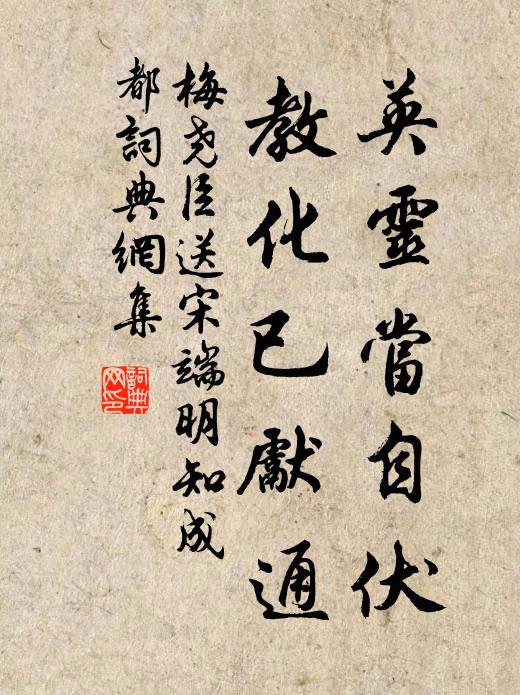 英靈當自伏
教化已獻通
梅尭臣送宋端明知成
都詞典網集
詞典
网印